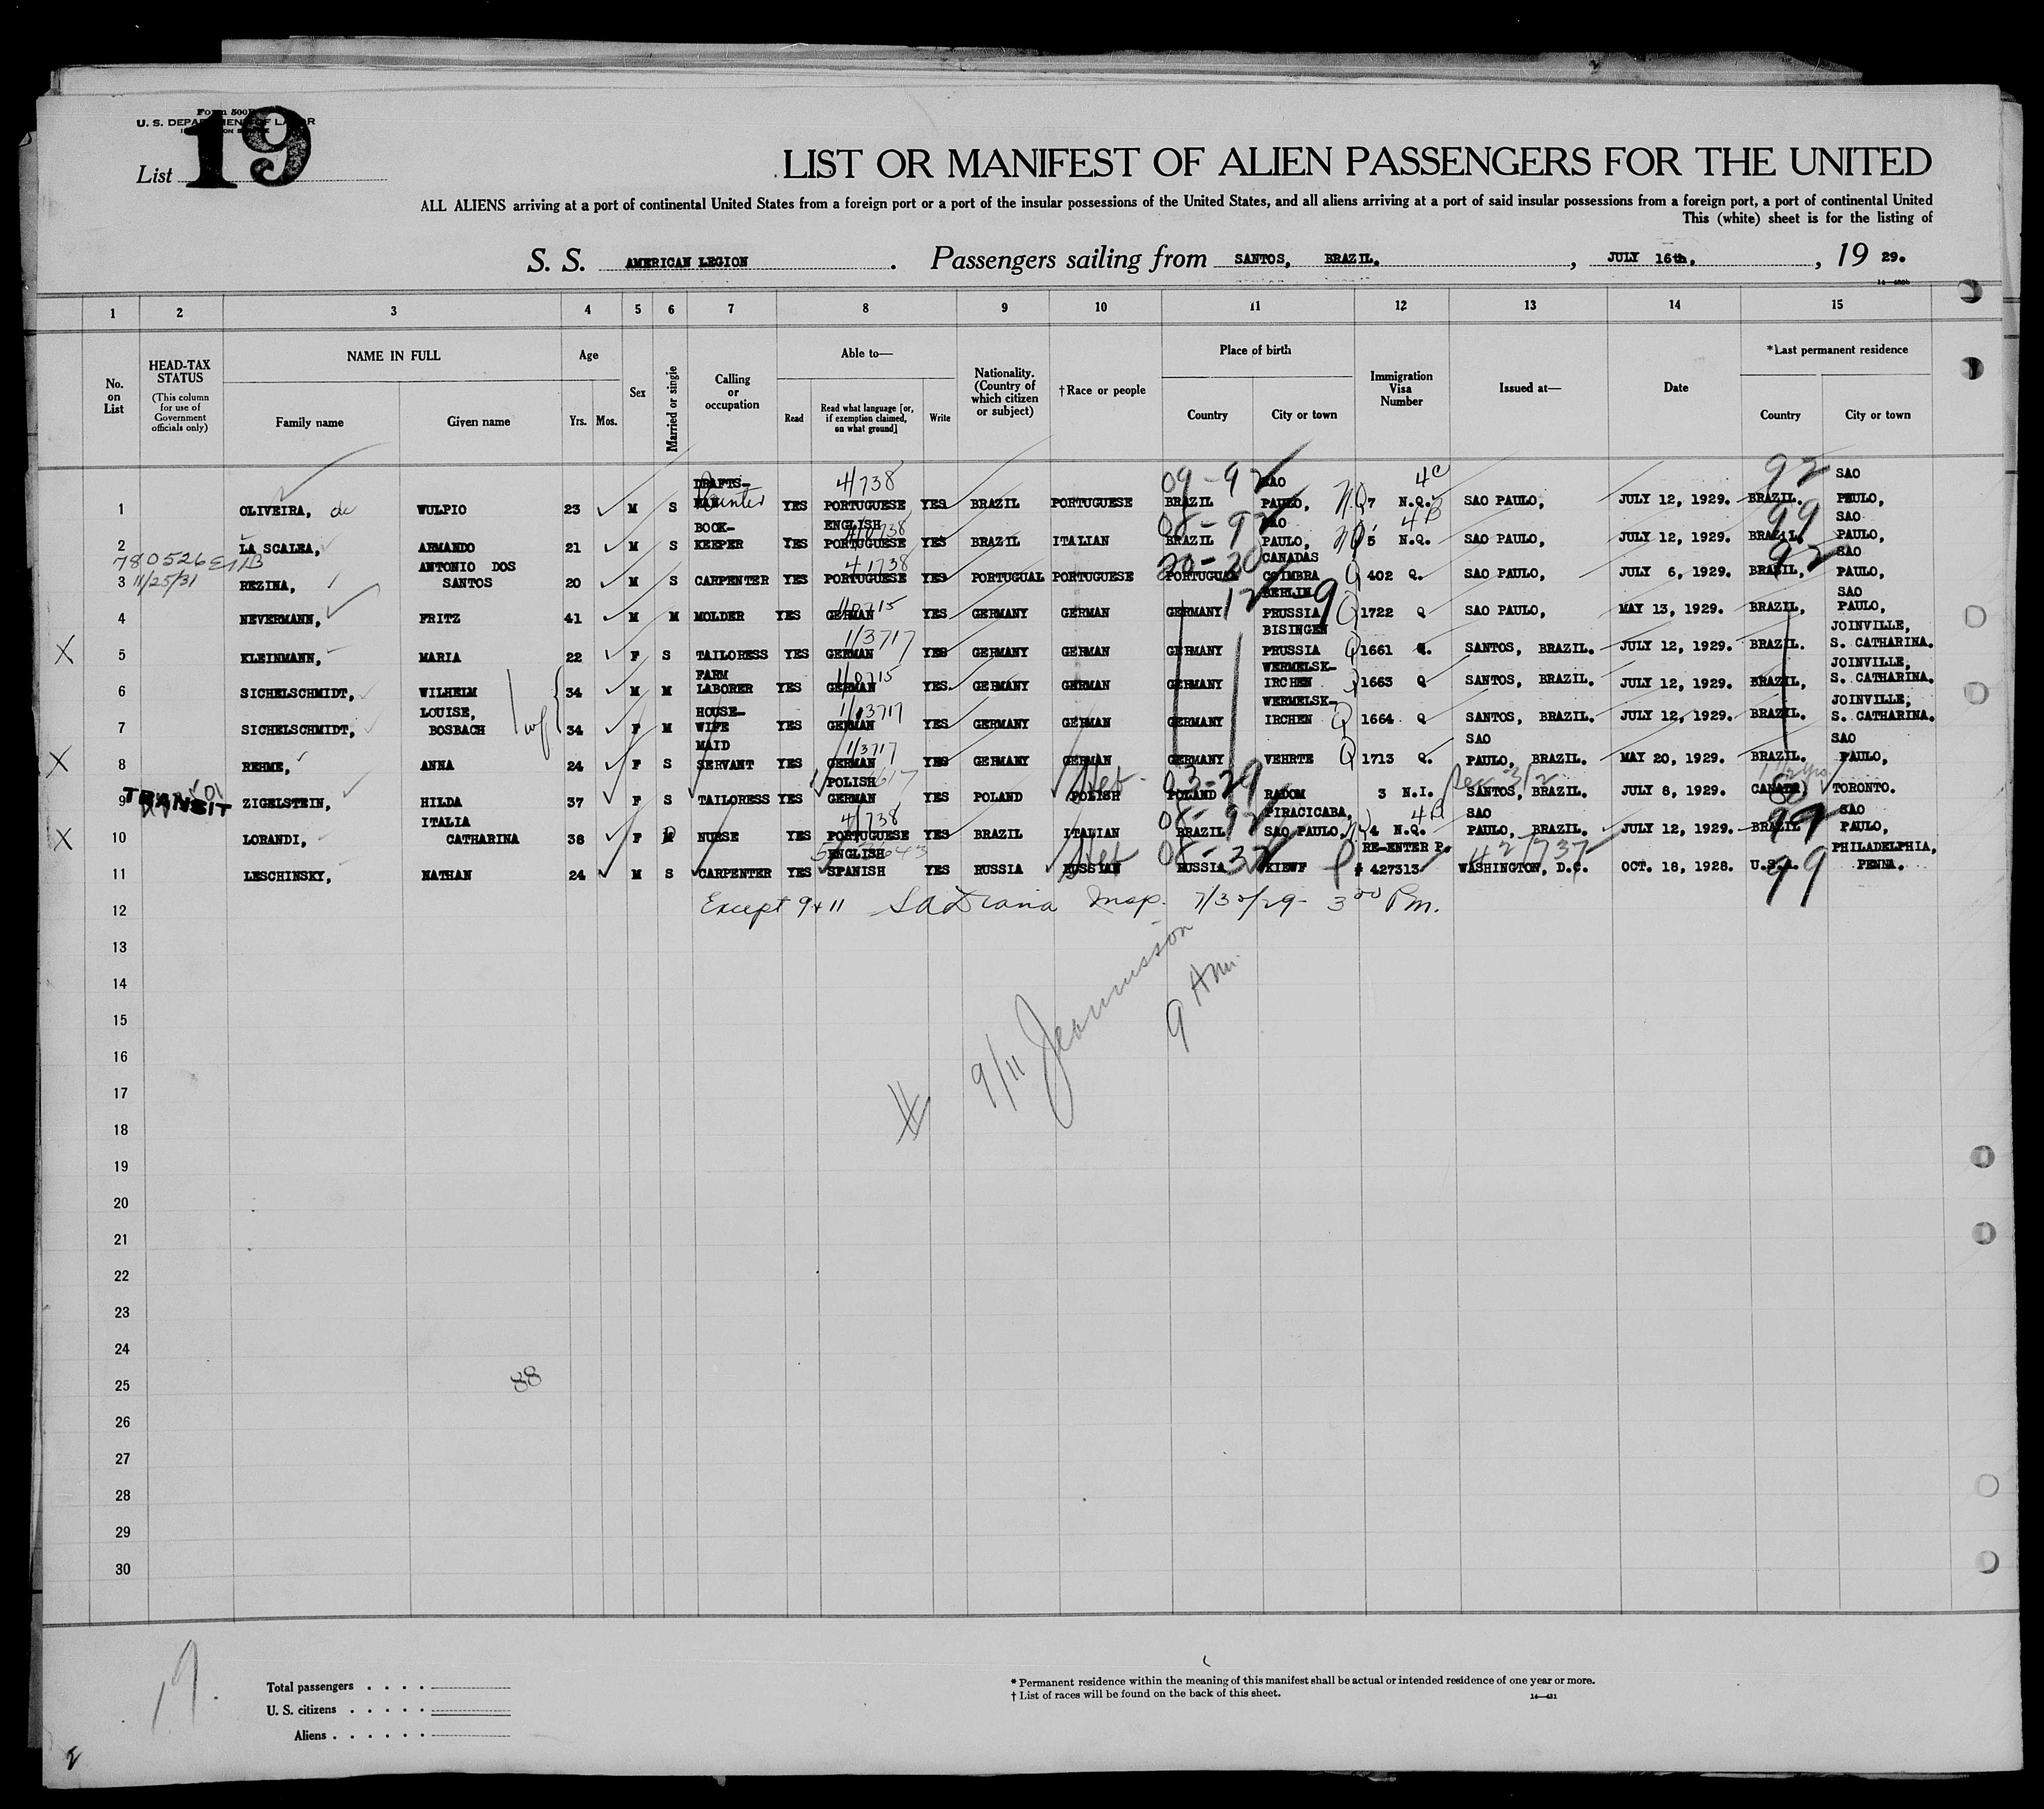 Form 500
U. S. DEPARTMENT OF LABOR
List 19
LIST OR MANIFEST OF ALIEN PASSENGERS FOR THE UNITED
ALL ALIENS arriving at a port of continental United States from a foreign port or a port of the insular possessions of the United States, and all aliens arriving at a port of said insular possessions from a foreign port, a port of continental United
This (white) sheet is for the listing of
S. S. AMERICAN LEGION. Passengers sailing from SANTOS, BRAZIL., JULY 16th., 19 29.
1 2 3 4 5 6 7 8 9 10 11 12 13 14 15
No. on List
HEAD-TAX STATUS
(This column for use of Government officials only)
NAME IN FULL
Family name
Given name
Age
Yrs. Mos.
Sex
Married or single
Calling or occupation
Able to—
Read
Read what language [or, if exemption claimed, on what ground]
Write
Nationality. (Country of which citizen or subject)
†Race or people
Place of birth
Country
City or town
Immigration Visa Number
Issued at—
Date
*Last permanent residence
Country
City or town
1 OLIVEIRA, de WULPIO 23 M S DRAFTS-MAN Painter YES PORTUGUESE 4/738 YES BRAZIL PORTUGUESE BRAZIL 09-92 SAO PAULO, NQ 7 N.Q. 4C SAO PAULO, JULY 12, 1929. BRAZIL. 92 SAO PAULO,
2 LA SCALEA, ARMANDO 21 M S BOOK-KEEPER YES ENGLISH PORTUGUESE YES BRAZIL ITALIAN BRAZIL SAO PAULO, 5 N.Q. 4B SAO PAULO, JULY 12, 1929. BRAZIL, 99 SAO PAULO,
780526
11/25/31
3 REZINA, ANTONIO DOS SANTOS 20 M S CARPENTER YES PORTUGUESE 4/738 YES PORTUGUAL PORTUGUESE PORTUGUAL 20-20 CANADAS COIMBRA Q 402 Q. SAO PAULO, JULY 6, 1929. BRAZIL, 92 SAO PAULO,
4 NEVERMANN, FRITZ 41 M M MOLDER YES GERMAN YES GERMANY GERMAN GERMANY 12 BERLIN PRUSSIA 9 Q 1722 Q SAO PAULO, MAY 13, 1929. BRAZIL, SAO PAULO,
X 5 KLEINMANN, MARIA 22 F S TAILORESS YES GERMAN 1/3717 YES GERMANY GERMAN GERMANY BISINGEN PRUSSIA Q 1661 Q. SANTOS, BRAZIL. JULY 12, 1929. BRAZIL. JOINVILLE, S. CATHARINA.
6 SICHELSCHMIDT, WILHELM 34 M M FARM LABORER YES GERMAN YES GERMANY GERMAN GERMANY WERMELSK-IRCHEN 1663 Q SANTOS, BRAZIL. JULY 12, 1929. BRAZIL, JOINVILLE, S. CATHARINA.
7 SICHELSCHMIDT, LOUISE, BOSBACH wf 34 F M HOUSE-WIFE YES GERMAN YES GERMANY GERMAN GERMANY WERMELSK-IRCHEN Q 1664 Q SANTOS, BRAZIL. JULY 12, 1929. BRAZIL. JOINVILLE, S. CATHARINA.
X 8 REHME, ANNA 24 F S MAID SERVANT YES GERMAN 1/3717 YES GERMANY GERMAN GERMANY VEHRTE Q 1713 Q. SAO PAULO, BRAZIL. MAY 20, 1929. BRAZIL. SAO PAULO,
TRANSIT
9 ZIGELSTEIN, HILDA 37 F S TAILORESS YES POLISH GERMAN YES POLAND POLISH Heb. POLAND 03-29 RADOM 3 N.I. SANTOS, BRAZIL. JULY 8, 1929. CANADA, TORONTO.
X 10 LORANDI, ITALIA CATHARINA 38 F NURSE YES PORTUGUESE 4/738 YES BRAZIL ITALIAN BRAZIL 08-92 PIRACICABA, SAO PAULO, 4 N.Q. 4B SAO PAULO, BRAZIL. JULY 12, 1929. BRAZIL 99 SAO PAULO,
11 LESCHINSKY, NATHAN 24 M S CARPENTER YES ENGLISH SPANISH YES RUSSIA RUSSIAN Heb RUSSIA 08-32 KIEWF RE-ENTER P. # 427313 WASHINGTON, D.C. OCT. 18, 1928. U.S.A. 99 PHILADELPHIA, PENNA.
12 Except 9 & 11 Insp. 7/30/29 - 3 00 P.m.
13
14
9/11
9 Am.
15
16
17
18
19
20
21
22
23
24
25
88
26
27
28
29
30
19.
Total passengers
U. S. citizens
Aliens
* Permanent residence within the meaning of this manifest shall be actual or intended residence of one year or more.
† List of races will be found on the back of this sheet.
14—431